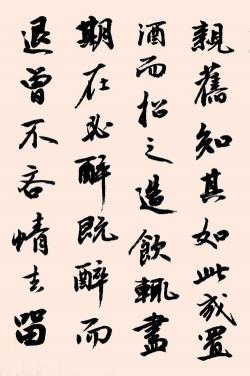 親舊知其如此或置
酒而招之造飲輒盡
期在必醉既醉而
退曾不吝情去留